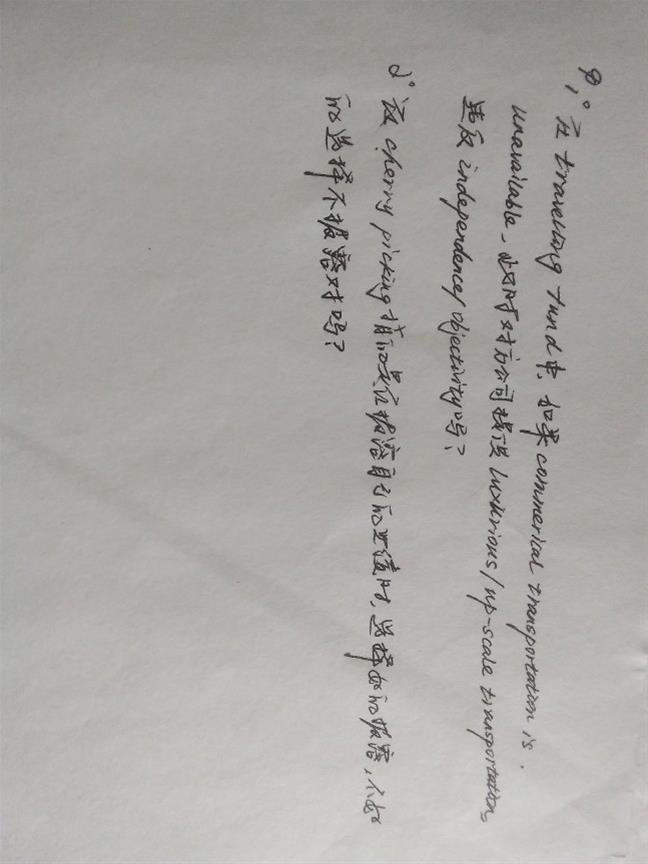 Q 1° 在 travelling fund中, 如果 commerical transportation is
unavailable, 此时对方公司提供 luxurious/up-scale transportations
违反 independence/objectivity吗?
2° 该 cherry picking 指的是在披露自己的业绩时, 选择好的披露, 不好
的选择不披露对吗?